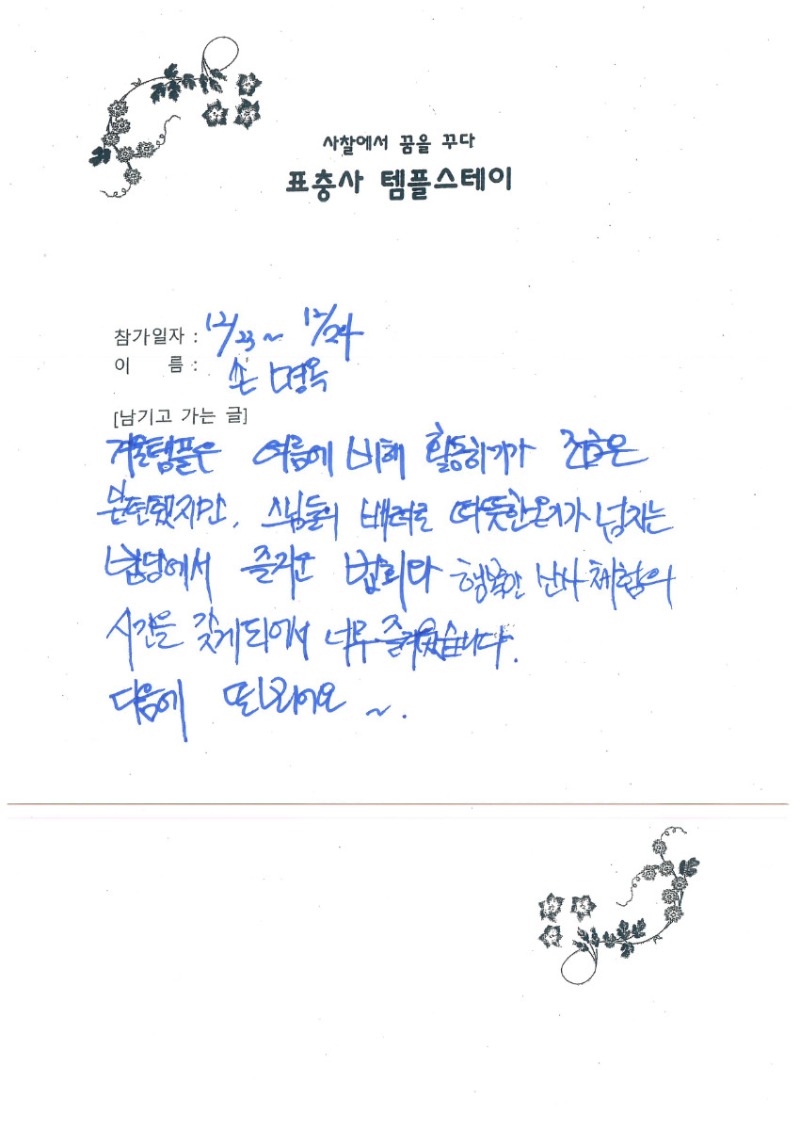 사찰에서 꿈을 꾸다
표충사 템플스테이
참가일자 : 12/23 ~ 12/24
이 름 : 손명옥
[남기고 가는 글]
겨울템플은 여름에 비해 활동하기가 조금은
불편했지만, 스님들의 배려로 따뜻한온기가 넘치는
법당에서 즐거운 법회와 행복한 난사 체험의
시간을 갖게되어서 너무 즐거웠습니다.
다음에 또 올게요 ~.